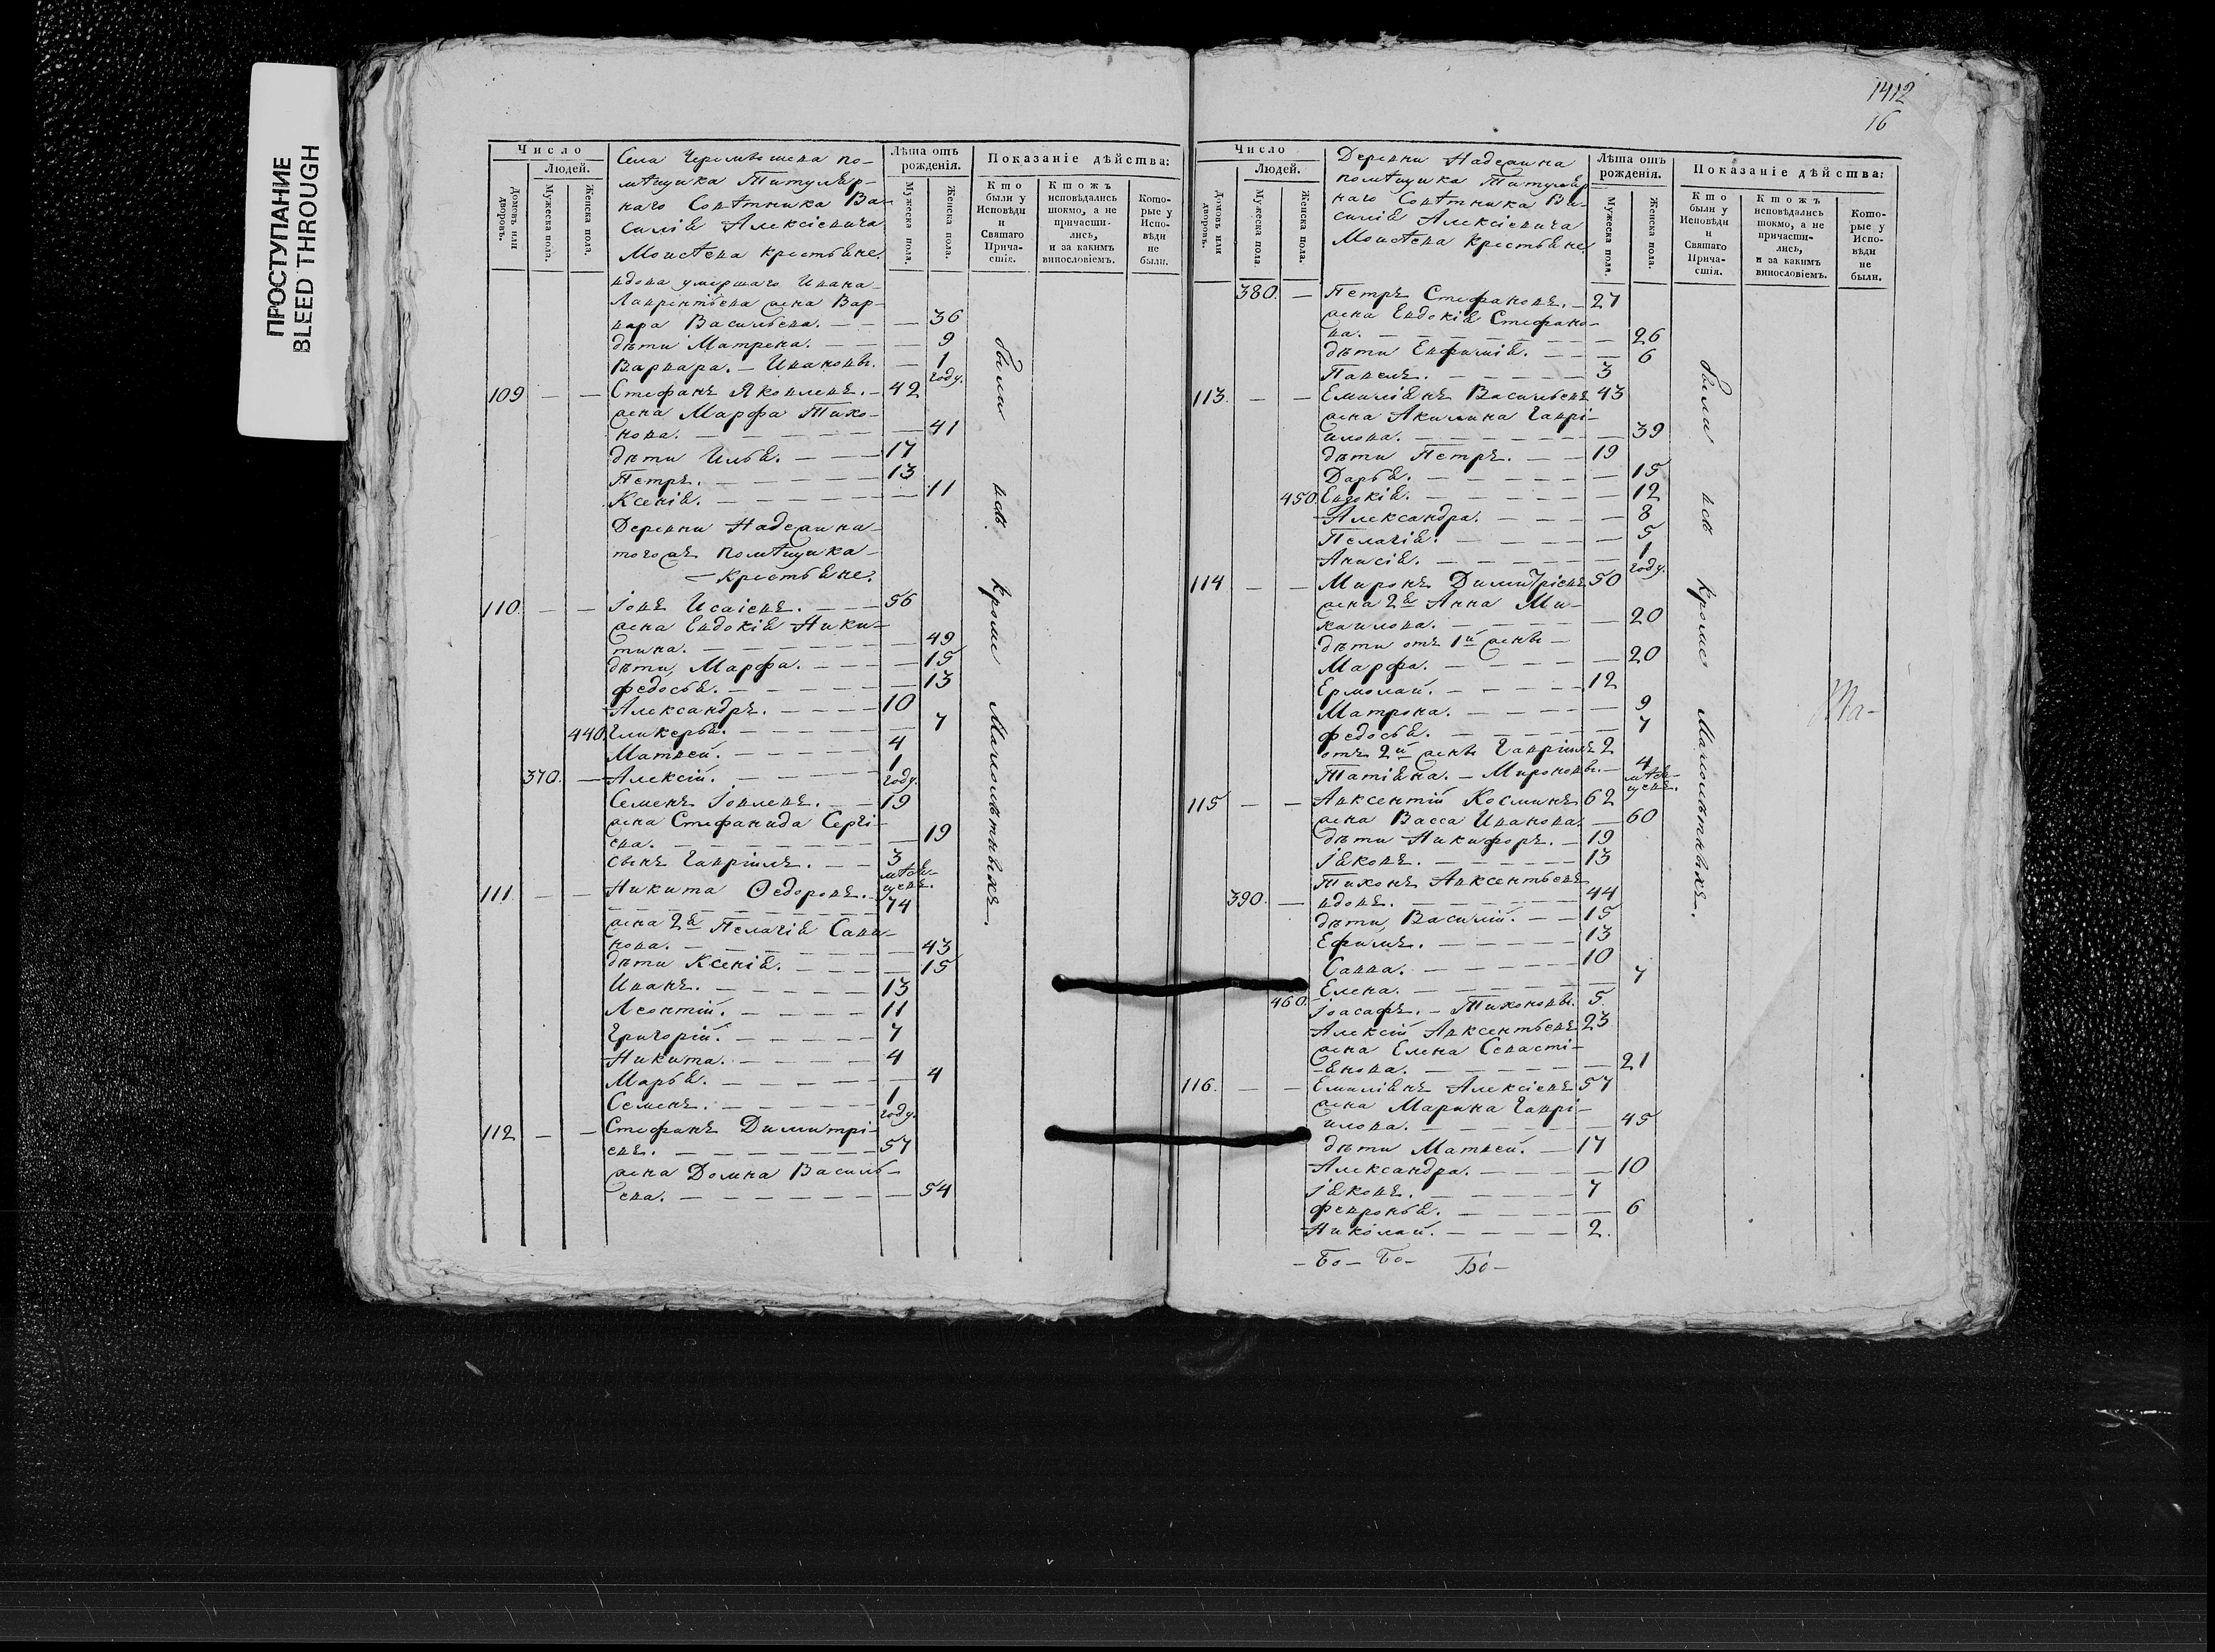 ПРОСТУПАНИЕ
BLEED THROUGH
Число
Людей.
Домовъ или дворовъ.
Мужеска пола.
Женска пола.
Села Черемышева по-
мѣщика Титуляр-
наго Совѣтника Ва-
силія Алексіевича
Моисѣева крестьяне.
Лѣта отъ рожденія.
Мужеска пола.
Женска пола.
Показаніе дѣйства:
Кто были у Исповѣди и Святаго Прича-стія.
Ктожъ исповѣдались токмо, а не причасти-лись, и за какимъ винословіемъ.
Кото-рые у Испо-вѣди не были.
вдова умершаго Ивана
Лаврентьева жена Вар-
вара Васильева. — — — 36
дѣти Матрена. — — — 9
Варвара. — Ивановы. — 1 году.
109 — — Стефанъ Яковлевъ. — 42
жена Марфа Тихо-
нова. — — — — 41
дѣти Илья. — — 17
Петръ. — — — 13
Ксенія. — — — — 11
Деревни Надежина
тогожъ помѣщика
— крестьяне.
110. — — Іовъ Исаіевъ. — — 56
жена Евдокія Ники-
тина. — — — — 49
дѣти, Марфа. — — — 15
федосья. — — — — 13
Александръ. — — — 10
440. Гликерья. — — — — 7
Матвей. — — — 4
370. — Алексій. — — — 1 году.
Семенъ Іовлевъ. — — 19
жена Стефанида Сергі-
ева. — — — — 19
сынъ Гавріилъ. — — 3 мѣся-цевъ.
111 — — Никита Ѳедоровъ. — 74
жена 2я Пелагія Сави-
нова. — — — — 43
дѣти Ксенія. — — — 15
Иванъ. — — — 13
Леонтій. — — — 11
Григорій. — — — 7
Никита. — — — 4
Марья. — — — — 4
Семенъ. — — — 1 году.
112 — — Стефанъ Димитрі-
евъ. — — — 57
жена Домна Василь-
ева. — — — — 54
были всѣ кроме Малолѣтныхъ.
1412
16
Число
Людей.
Домовъ или дворовъ.
Мужеска пола.
Женска пола.
Деревни Надежина
помѣщика Титуляр
наго Совѣтника Ва-
силія Алексіевича
Моисѣева крестьяне
Лѣта отъ рожденія.
Мужеска пола.
Женска пола.
Показаніе дѣйства:
Кто были у Исповѣди и Святаго Прича-стія.
Ктожъ исповѣдались токмо, а не причасти-лись, и за какимъ винословіемъ.
Кото-рые у Испо-вѣди не были.
380. — Петръ Стефановъ. — 27
жена Евдокія Стефано-
ва. — — — — 26
дѣти Евфимія. — — — 6
Павелъ. — — — 3
113. — — Емиліянъ Васильевъ 43
жена Акилина Гаврі-
илова. — — — — 39
дѣти Петръ. — — 19
Дарья. — — — — 15
450. Евдокія. — — — — 12
Александра. — — — 8
Пелагія. — — — — 5
Анисія. — — — — 1 году.
114 — — Миронъ Димитріевъ 50
жена 2я Анна Ми-
хаилова. — — — — 20
дѣти отъ 1й жены —
Марфа. — — — — 20
Ермолай. — — — 12
Матрона. — — — — 9
федосья. — — — — 7
отъ 2й жены Гавріилъ 2
Татіяна. — Мироновы. — 4 мѣся-цевъ.
115 — — Авксентій Косминъ 62
жена Васса Иванова. — 60
дѣти Никифоръ. — 19
Іяковъ. — — — 13
Тихонъ Авксентьевъ
390. — вдовъ. — — — 44
дѣти, Василій. — — 15
Ефимъ. — — — 13
Савва. — — — 10
Елена. — — — — 7
460. Іоасафъ. — Тихоновы. 5
Алексій Авксентьевъ 23
жена Елена Севасті-
янова. — — — — 21
116. — — Емиліянъ Алексіевъ 57
жена Марина Гаврі-
илова. — — — — 45
дѣти Матвей. — 17
Александра. — — — 10
Іяковъ. — — — 7
февронья. — — — — 6
Николай. — — — 2.
были всѣ кроме Малолѣтныхъ.
Ма-
— Бо — Бо — Бо —